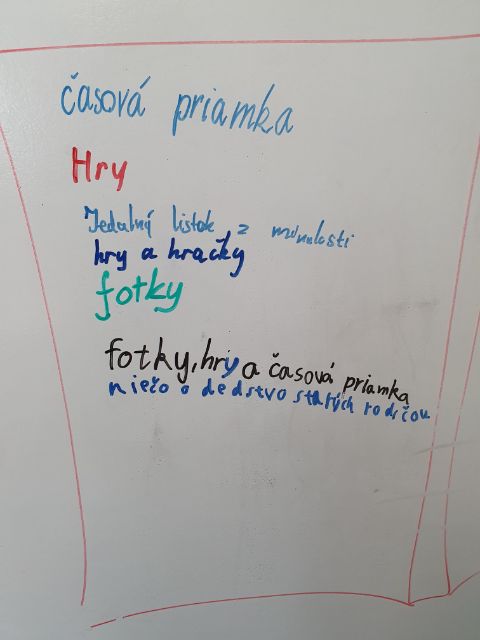 časová priamka
Hry
Jedalný listok z minulosti
hry a hračky
fotky
fotky, hry a časová priamka
niečo o dedstvo starých rodičov